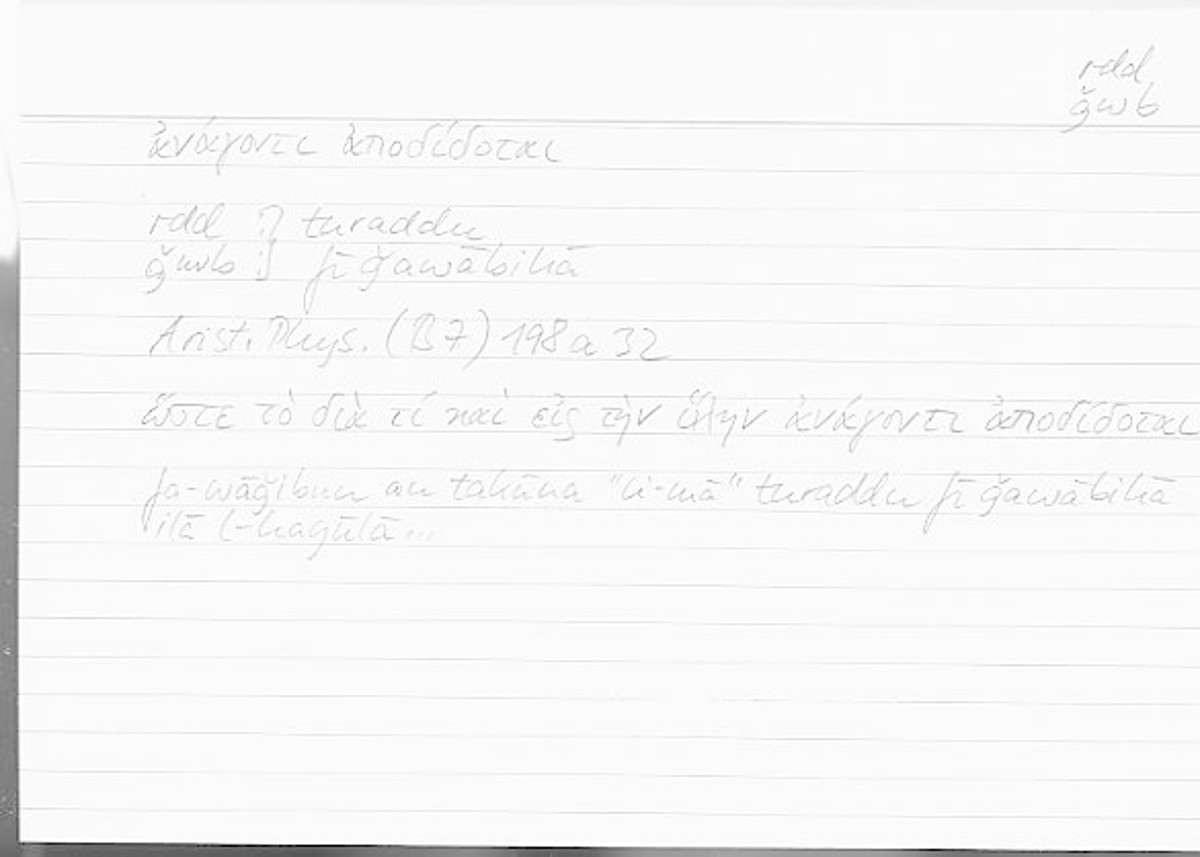 rdd
ǧwb
ἀνάγοντι ἀποδίδοται
rdd turaddu
ǧwb fī ǧawābihā
Arist. Phys. (B7) 198a32
ὥστε τὸ διὰ τί καὶ εἰς τὴν ὕλην ἀνάγοντι ἀποδίδοται
fa-wāǧibun an takūna "li-mā" turaddu fī ǧawābihā
ilā l-hayūlā...